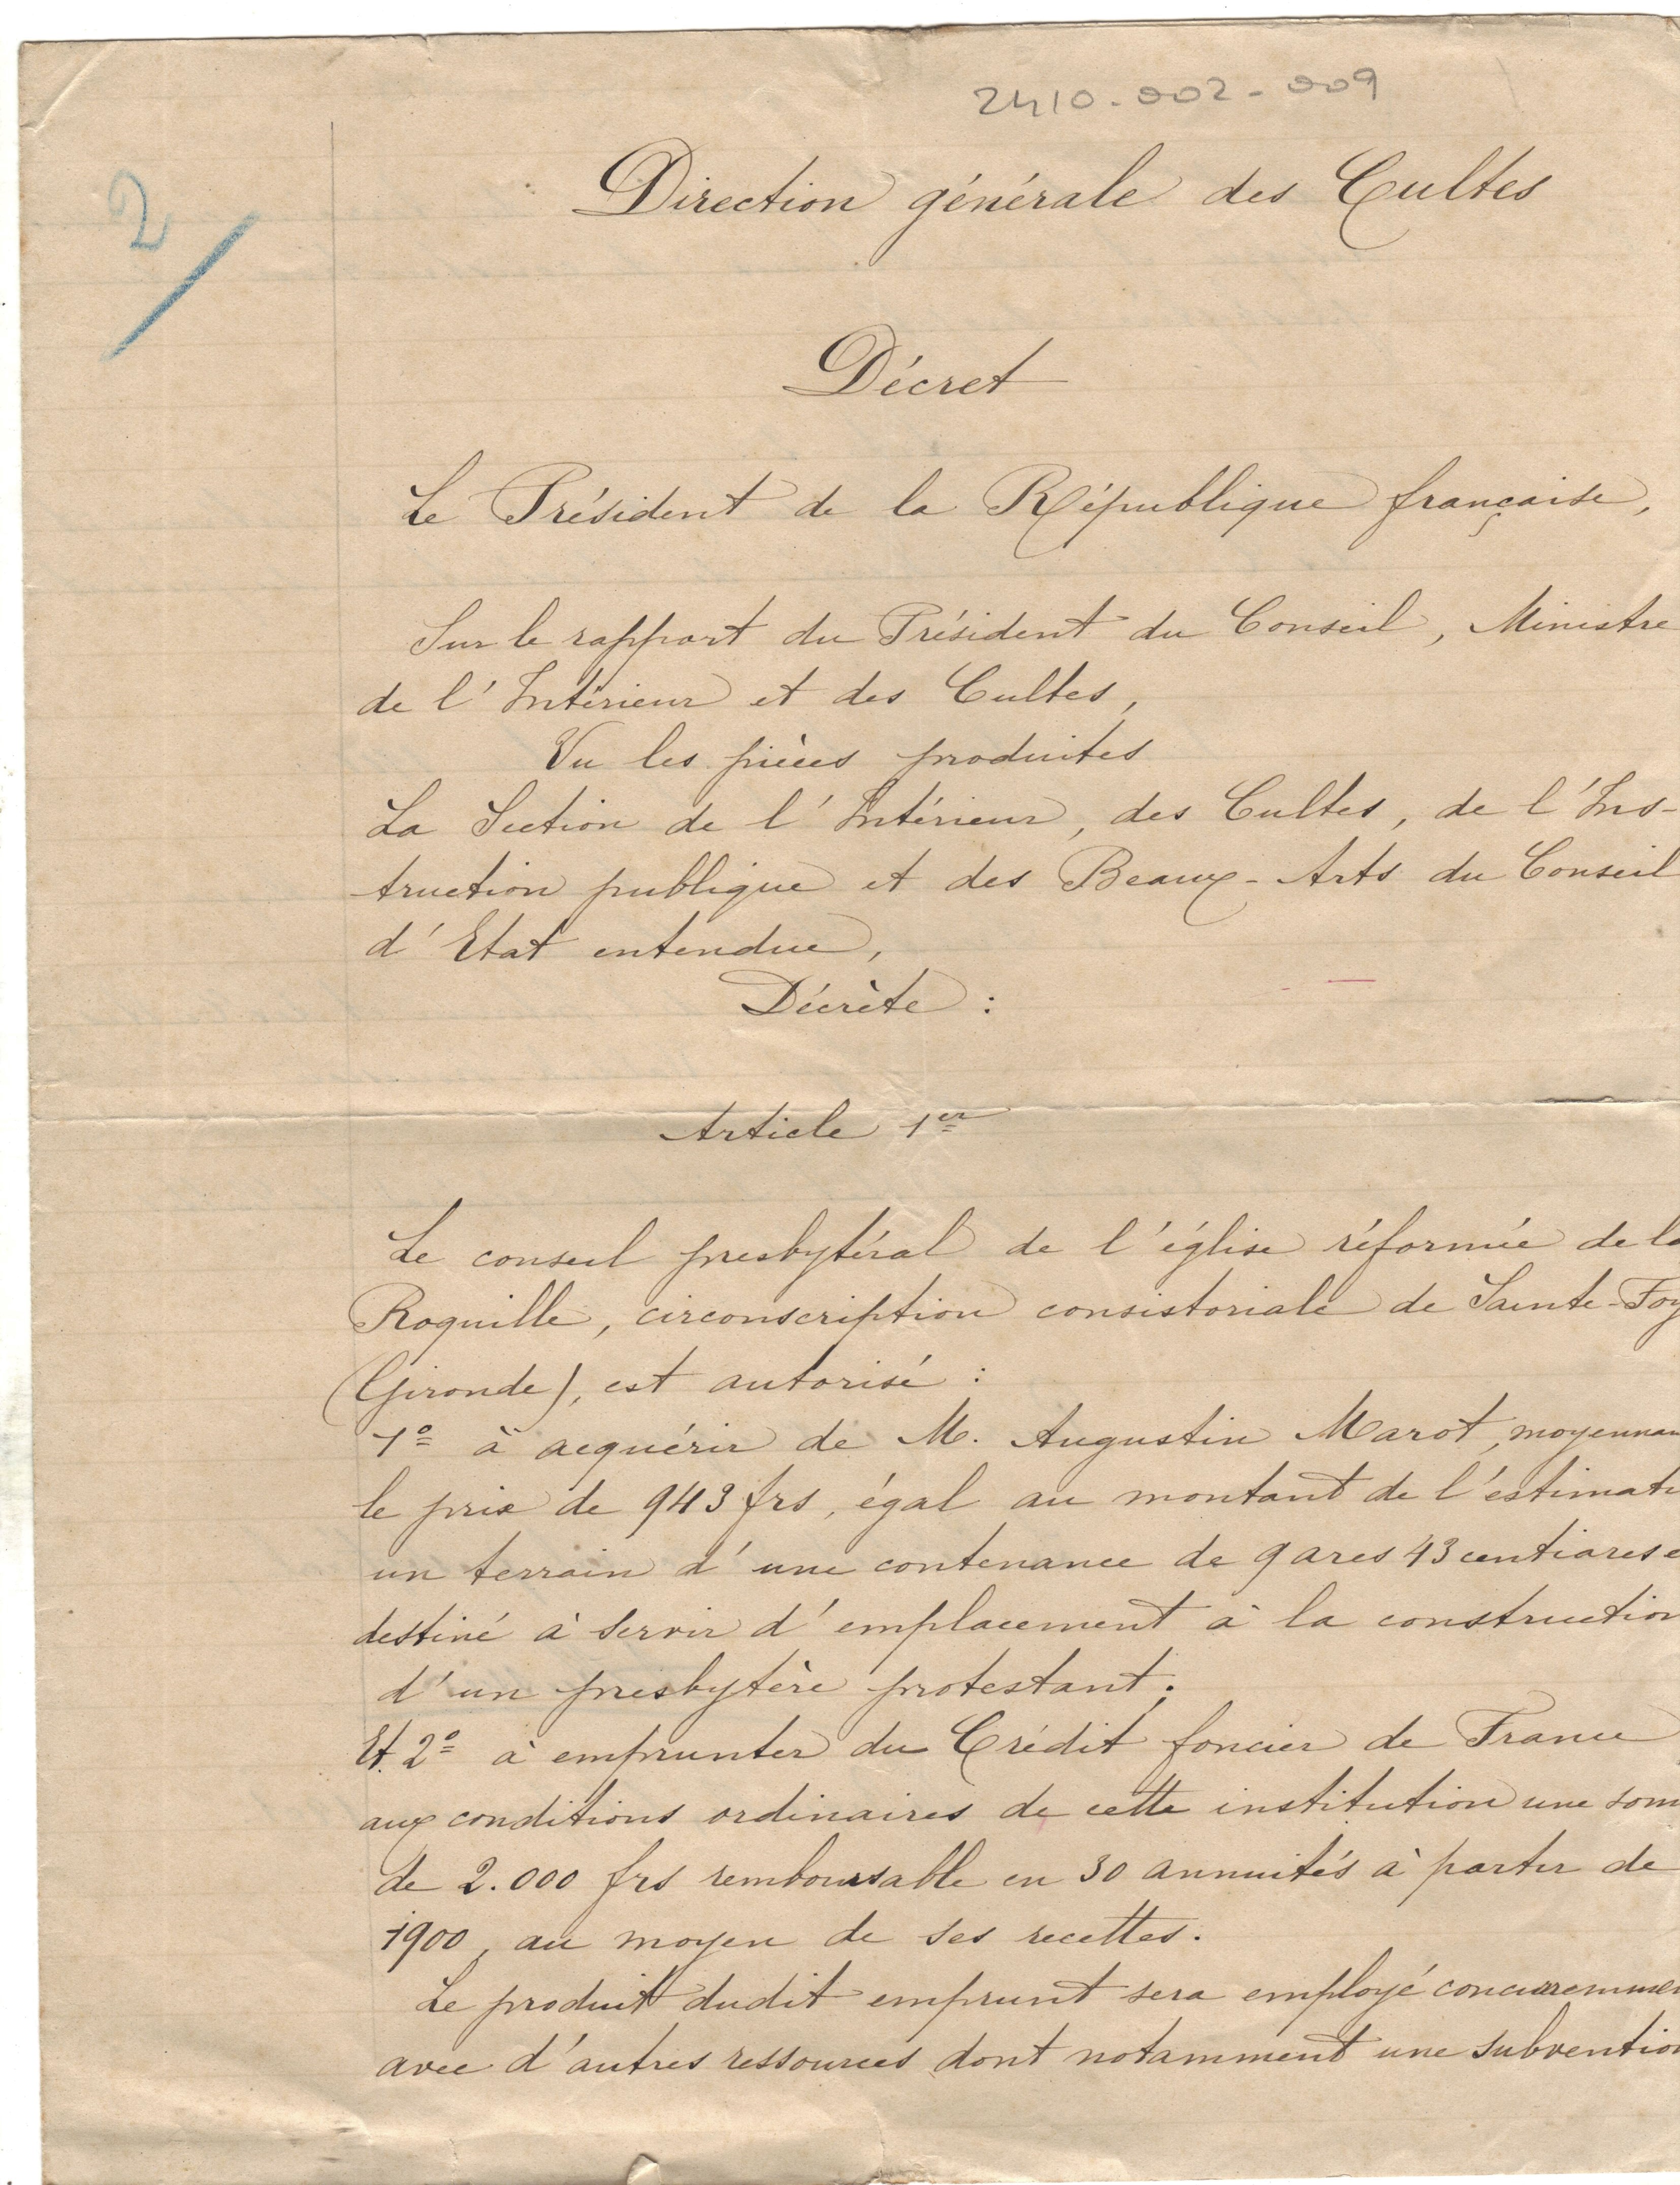 2410-002-009
2
Direction générale des Cultes
Décret
Le Président de la République française,
Sur le rapport du Président du Conseil, Ministre
de l'Intérieur et des Cultes,
Vu les pièces produites
La Section de l'Intérieur, des Cultes, de l'Ins-
truction publique et des Beaux-Arts du Conseil
d'Etat entendue,
Décrète :
Article 1er
Le conseil presbytéral de l'église réformée de la
Roquille, circonscription consistoriale de Sainte-Foy
(Gironde), est autorisé :
1º à acquérir de M. Augustin Marot, moyennan
le prix de 943 frs, égal au montant de l'estimati
un terrain d'une contenance de 9 ares 43 centiares e
destiné à servir d'emplacement à la construction
d'un presbytère protestant.
Et 2º à emprunter du Crédit foncier de France
aux conditions ordinaires de cette institution une som
de 2.000 frs remboursable en 30 annuités à partir de
1900, au moyen de ses recettes.
Le produit dudit emprunt sera employé concurremmen
avec d'autres ressources dont notamment une subvention